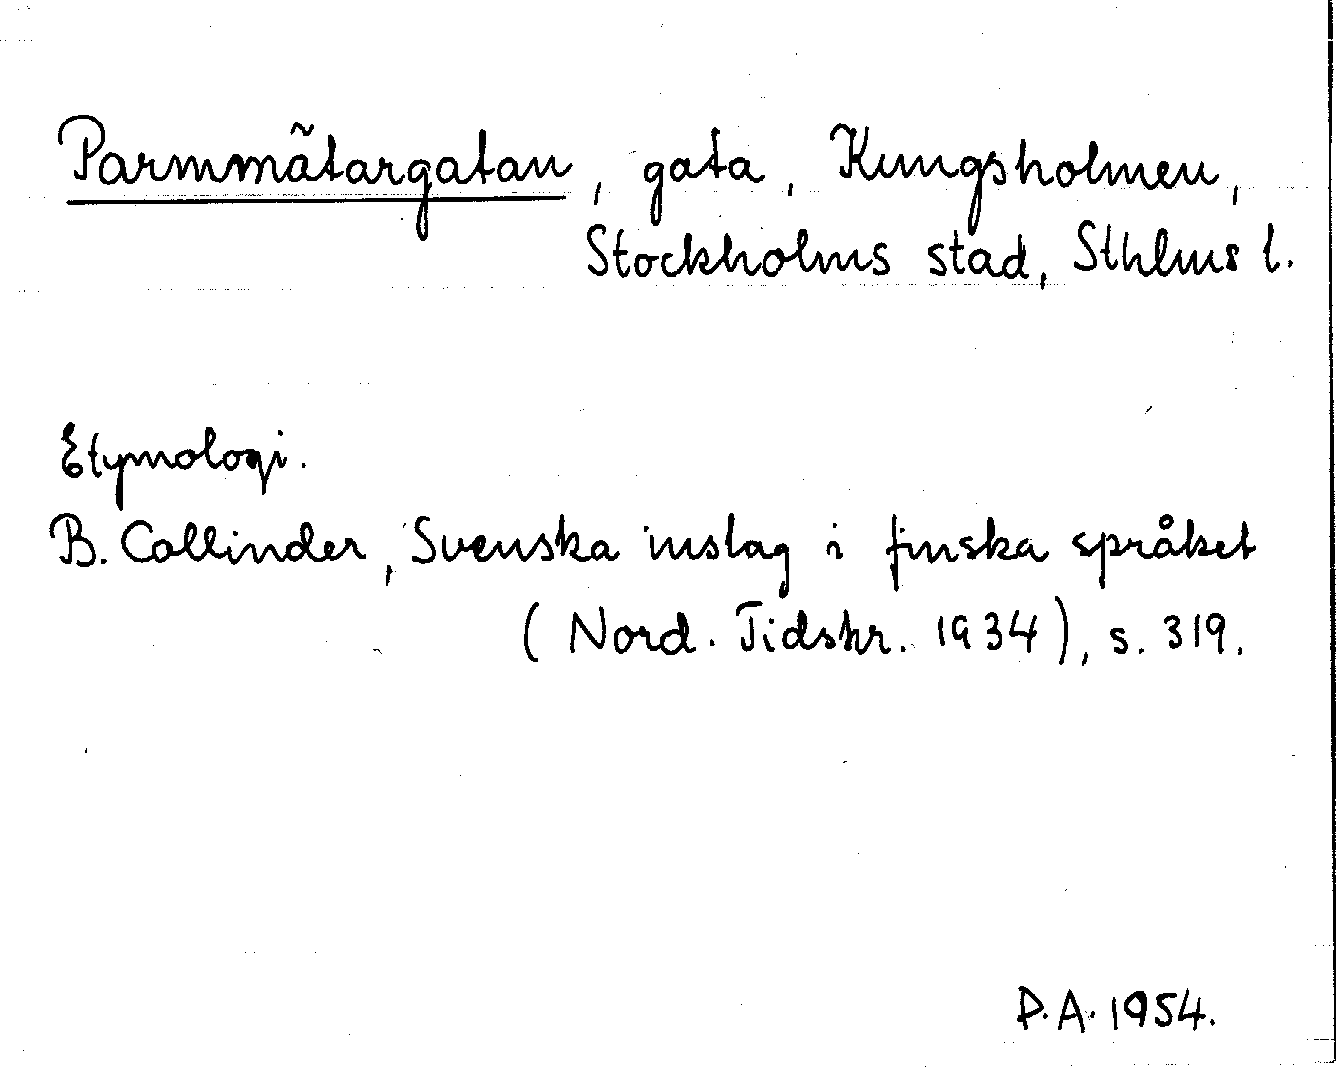 Parmmätargatan, gata, Kungsholmen,
Stockholms stad, Sthlms l.
Etymologi.
B. Collinder, Svenska inslag i finska språket
(Nord. Tidskr. 1934), s. 319.
P.A. 1954.